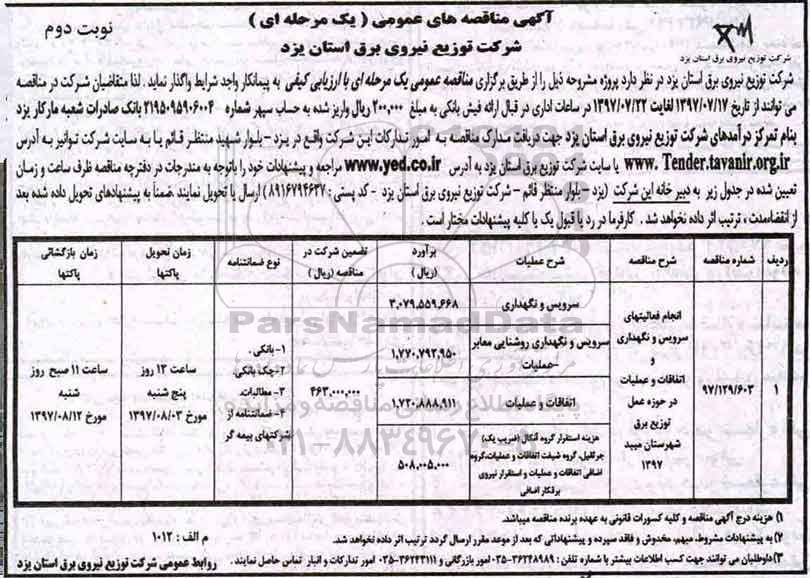 آگهی مناقصه های عمومی ( یک مرحله ای )
شرکت توزیع نیروی برق استان یزد
نوبت دوم
شرکت توزیع نیروی برق استان یزد
شرکت توزیع نیروی برق استان یزد در نظر دارد پروژه مشروحه ذیل را از طریق برگزاری مناقصه عمومی یک مرحله ای با ارزیابی کیفی به پیمانکار واجد شرایط واگذار نماید . لذا متقاضیان شرکت در مناقصه
می توانند از تاریخ ۱۳۹۷/۰۷/۱۷ لغایت ۱۳۹۷/۰۷/۲۲ در ساعات اداری در قبال ارائه فیش بانکی به مبلغ ۲۰۰,۰۰۰ ریال واریز شده به حساب سپهر شماره ۲۱۹۵۰۹۵۹۰۶۰۰۴ بانک صادرات شعبه مارکار یزد
بنام تمرکز درآمدهای شرکت توزیع نیروی برق استان یزد جهت دریافت مدارک مناقصه به امور تدارکات این شرکت واقع در یزد – بلوار شهید منتظر قائم یا به سایت شرکت توانیر به آدرس
www. Tender.tavanir.org.ir یا سایت شرکت توزیع برق استان یزد به آدرس www.yed.co.ir مراجعه و پیشنهادات خود را باتوجه به مندرجات در دفترچه مناقصه ظرف ساعت و زمان
تعیین شده در جدول زیر به دبیر خانه این شرکت (یزد – بلوار منتظر قائم – شرکت توزیع نیروی برق استان یزد - کد پستی : ۸۹۱۶۷۹۴۶۳۷) ارسال یا تحویل نمایند. ضمناً به پیشنهادهای تحویل داده شده بعد
از انقضاءمدت ، ترتیب اثر داده نخواهد شد . کارفرما در رد یا قبول یک یا کلیه پیشنهادات مختار است .
ردیف شماره مناقصه شرح مناقصه شرح عملیات برآورد (ریال) تضمین شرکت در مناقصه (ریال) نوع ضمانتنامه زمان تحویل پاکتها زمان بازگشائی پاکتها
۱
۹۷/۱۲۹/۶۰۳
انجام فعالیتهای
سرویس و نگهداری
و
اتفاقات و عملیات
در حوزه عمل
توزیع برق
شهرستان میبد
۱۳۹۷
سرویس و نگهداری ۳,۰۷۹,۵۵۹,۶۶۸
سرویس و نگهداری روشنایی معابر
–عملیات ۱,۷۷۰,۷۹۲,۹۵۰
اتفاقات و عملیات ۱,۷۲۰,۸۸۸,۹۱۱
هزینه استقرار گروه آنکال (ضریب یک)
جرثقیل، گروه شیفت اتفاقات و عملیات، گروه
اضافی اتفاقات و عملیات و استقرار نیروی
برقکار اضافی
۵۰۸,۰۰۵,۰۰۰
۴۶۳,۰۰۰,۰۰۰
۱- بانکی .
۲-چک بانکی.
۳- مطالبات.
۴- ضمانتنامه از
شرکتهای بیمه گر
ساعت ۱۳ روز
پنج شنبه
مورخ ۱۳۹۷/۰۸/۰۳
ساعت ۱۱ صبح روز
شنبه
مورخ ۱۳۹۷/۰۸/۱۲
ParsNamadData
پایگاه اطلاع رسانی مناقصه و مزایده
۰۲۱-۸۸۳۴۹۶۷۰
۱) هزینه درج آگهی مناقصه و کلیه کسورات قانونی به عهده برنده مناقصه میباشد.
۲) به پیشنهادات مشروط، مبهم، مخدوش و فاقد سپرده و پیشنهاداتی که بعد از موعد مقرر ارسال گردد ترتیب اثر داده نخواهد شد. م الف : ۱۰۱۲
۳) داوطلبان می توانند جهت کسب اطلاعات بیشتر با شماره تلفن : ۳۶۲۴۸۹۸۹-۰۳۵ امور بازرگانی و ۳۶۲۴۳۱۱۱-۰۳۵ امور تدارکات و انبار تماس حاصل نمایند. روابط عمومی شرکت توزیع نیروی برق استان یزد